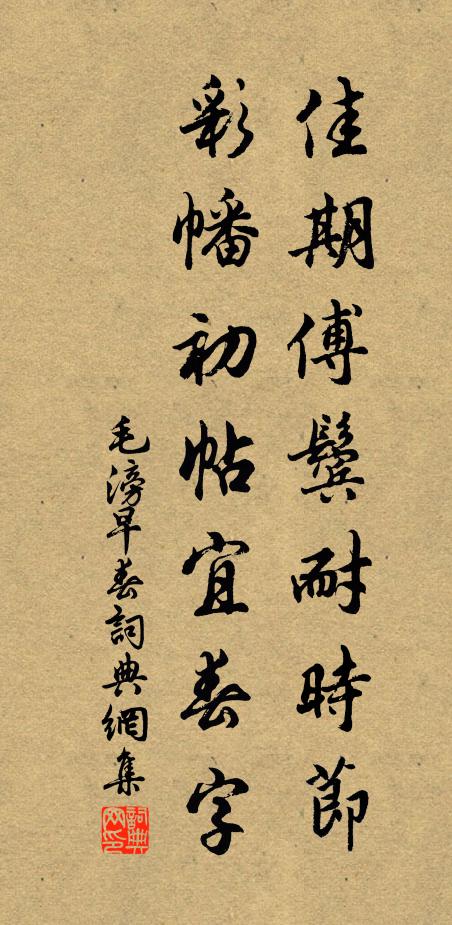 佳期傅鬢耐時節
彩幡初帖宜春字
毛滂早春詞典網集
詞典網印